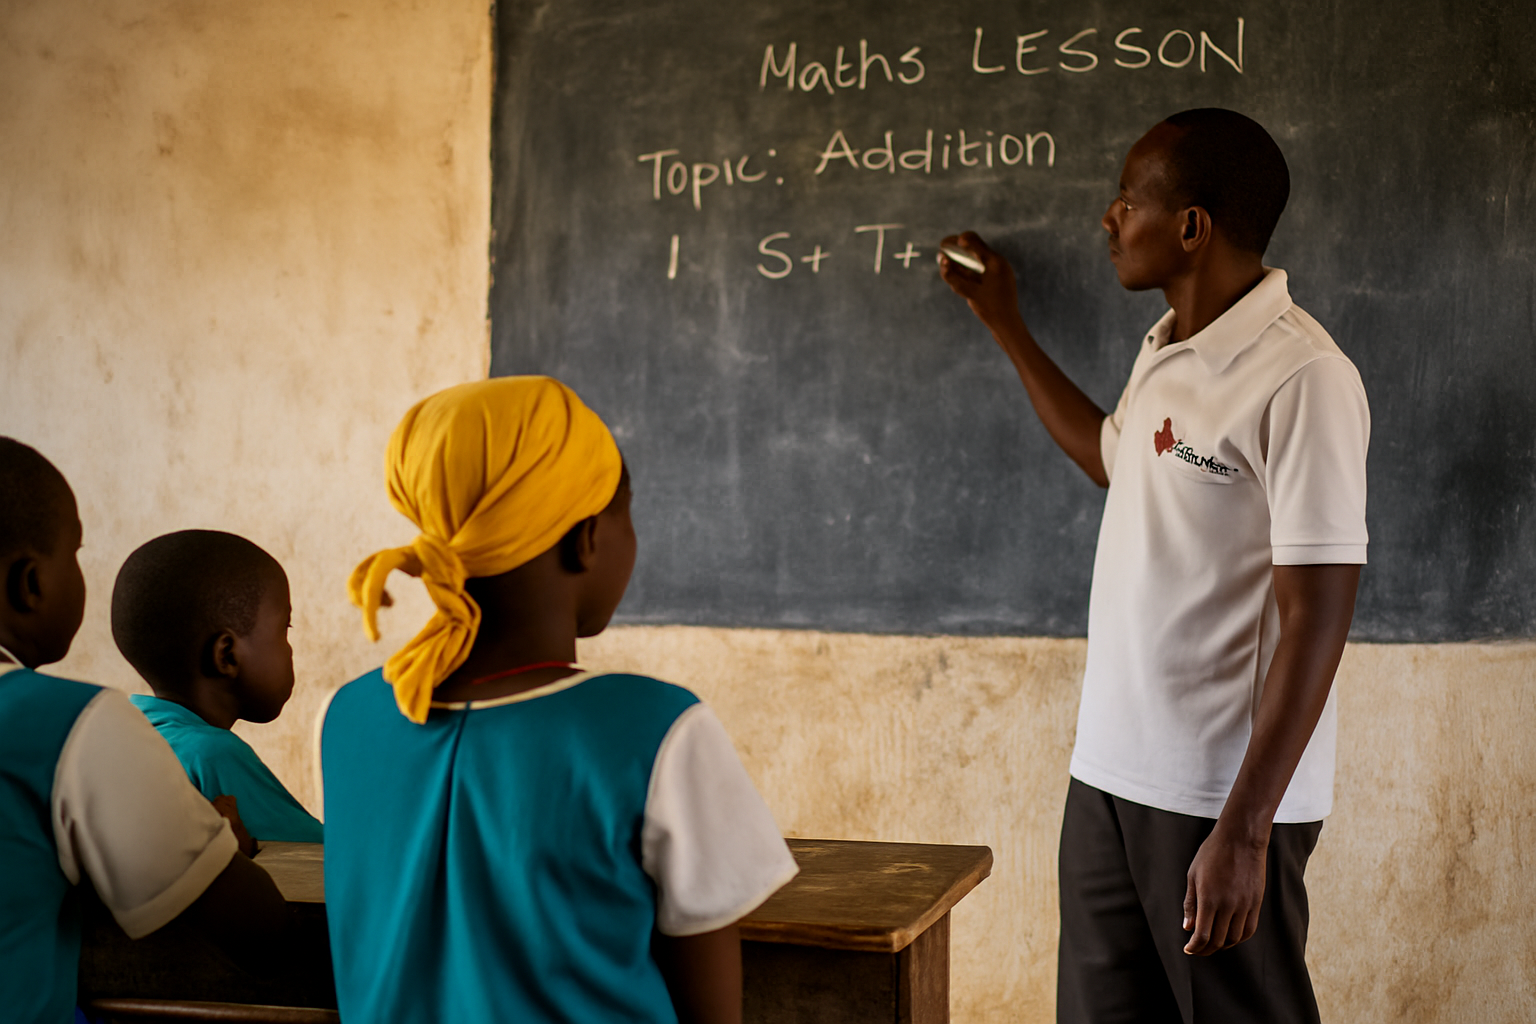 Maths LESSON
Topic: Addition
1 S+ T+